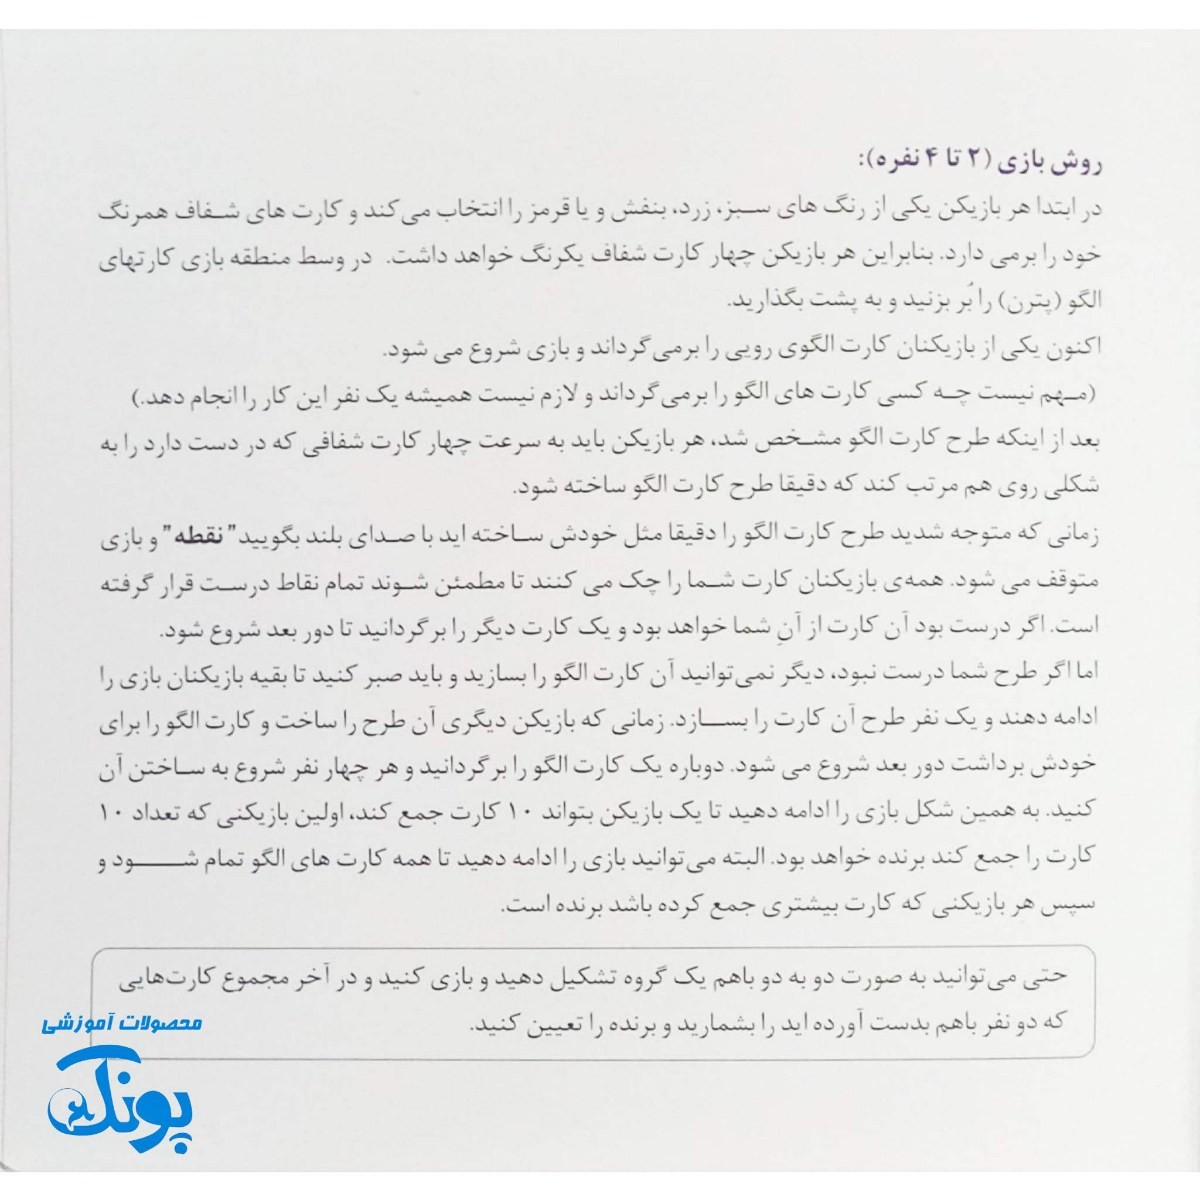 روش بازی (۲ تا ۴ نفره):
در ابتدا هر بازیکن یکی از رنگ های سبز، زرد، بنفش و یا قرمز را انتخاب می‌کند و کارت های شفاف همرنگ
خود را برمی دارد. بنابراین هر بازیکن چهار کارت شفاف یکرنگ خواهد داشت. در وسط منطقه بازی کارتهای
الگو (پترن) را بُر بزنید و به پشت بگذارید.
اکنون یکی از بازیکنان کارت الگوی رویی را برمی‌گرداند و بازی شروع می شود.
(مهم نیست چه کسی کارت های الگو را برمی‌گرداند و لازم نیست همیشه یک نفر این کار را انجام دهد.)
بعد از اینکه طرح کارت الگو مشخص شد، هر بازیکن باید به سرعت چهار کارت شفافی که در دست دارد را به
شکلی روی هم مرتب کند که دقیقا طرح کارت الگو ساخته شود.
زمانی که متوجه شدید طرح کارت الگو را دقیقا مثل خودش ساخته اید با صدای بلند بگویید" نقطه" و بازی
متوقف می شود. همه‌ی بازیکنان کارت شما را چک می کنند تا مطمئن شوند تمام نقاط درست قرار گرفته
است. اگر درست بود آن کارت از آنِ شما خواهد بود و یک کارت دیگر را برگردانید تا دور بعد شروع شود.
اما اگر طرح شما درست نبود، دیگر نمی‌توانید آن کارت الگو را بسازید و باید صبر کنید تا بقیه بازیکنان بازی را
ادامه دهند و یک نفر طرح آن کارت را بسازد. زمانی که بازیکن دیگری آن طرح را ساخت و کارت الگو را برای
خودش برداشت دور بعد شروع می شود. دوباره یک کارت الگو را برگردانید و هر چهار نفر شروع به ساختن آن
کنید. به همین شکل بازی را ادامه دهید تا یک بازیکن بتواند ۱۰ کارت جمع کند، اولین بازیکنی که تعداد ۱۰
کارت را جمع کند برنده خواهد بود. البته می‌توانید بازی را ادامه دهید تا همه کارت های الگو تمام شود و
سپس هر بازیکنی که کارت بیشتری جمع کرده باشد برنده است.
حتی می‌توانید به صورت دو به دو باهم یک گروه تشکیل دهید و بازی کنید و در آخر مجموع کارت‌هایی
که دو نفر باهم بدست آورده اید را بشمارید و برنده را تعیین کنید.
محصولات آموزشی
پونک